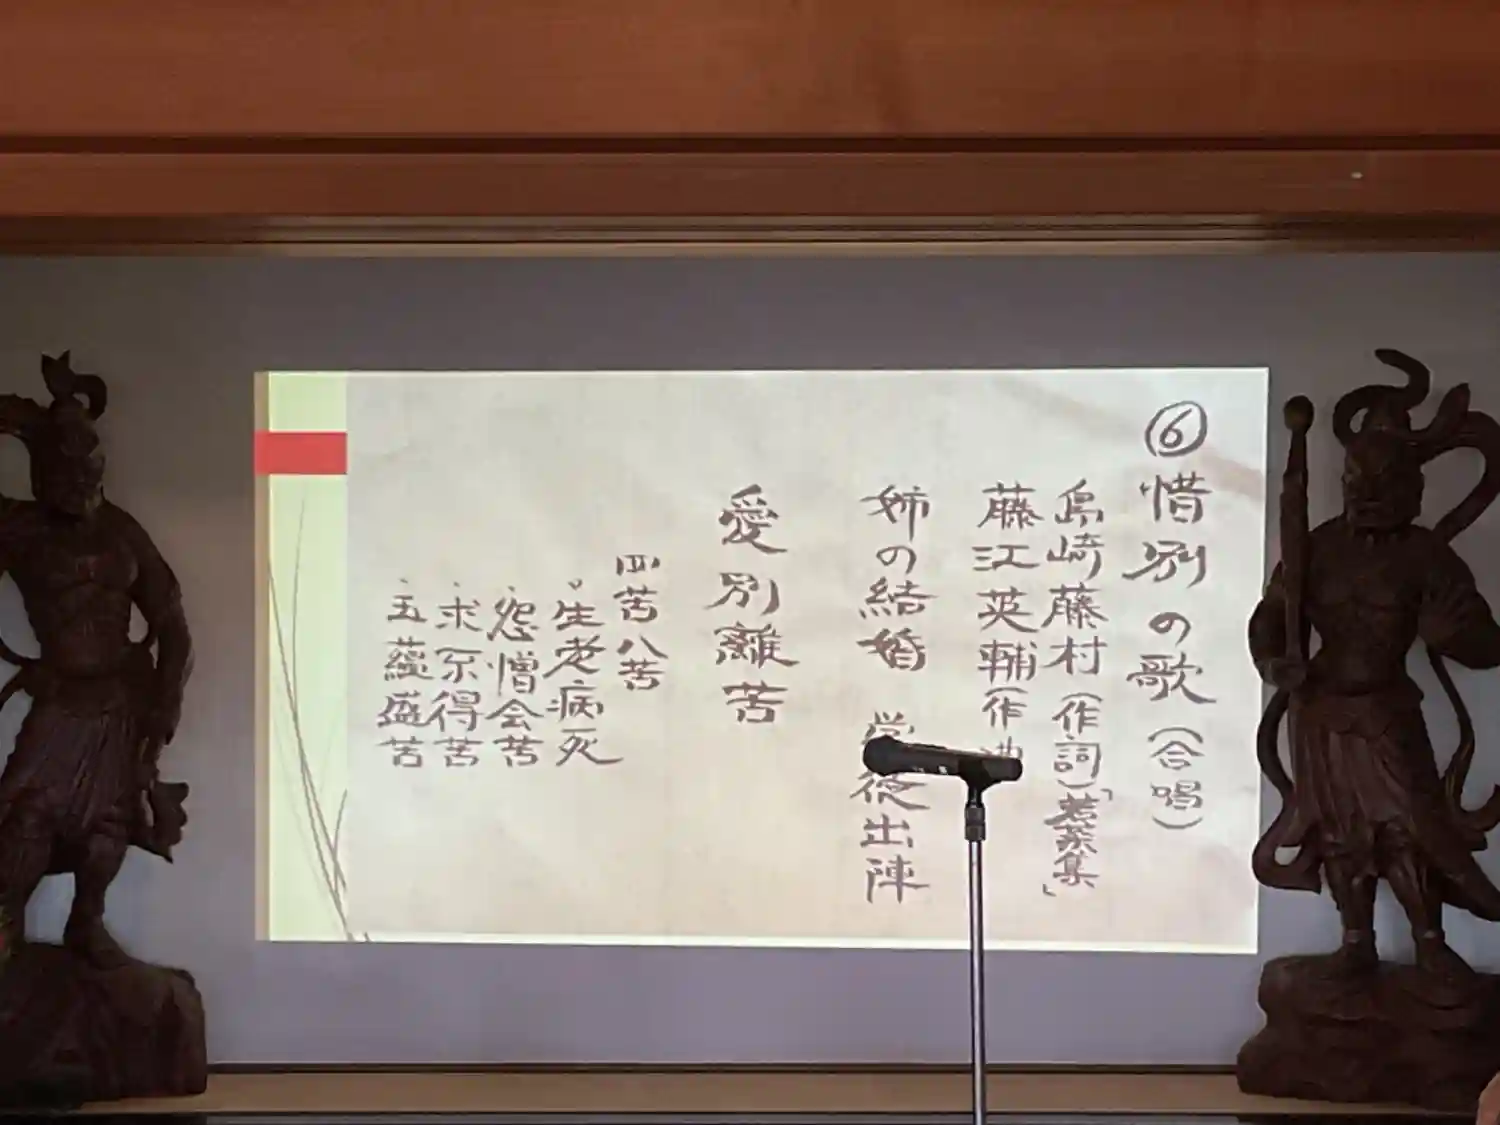 ⑥惜別の歌（合唱）
島崎藤村（作詞）「若菜集」
藤江英輔（作曲
姉の結婚 学徒出陣
愛別離苦
四苦八苦
・生老病死
・怨憎会苦
・求不得苦
・五蘊盛苦